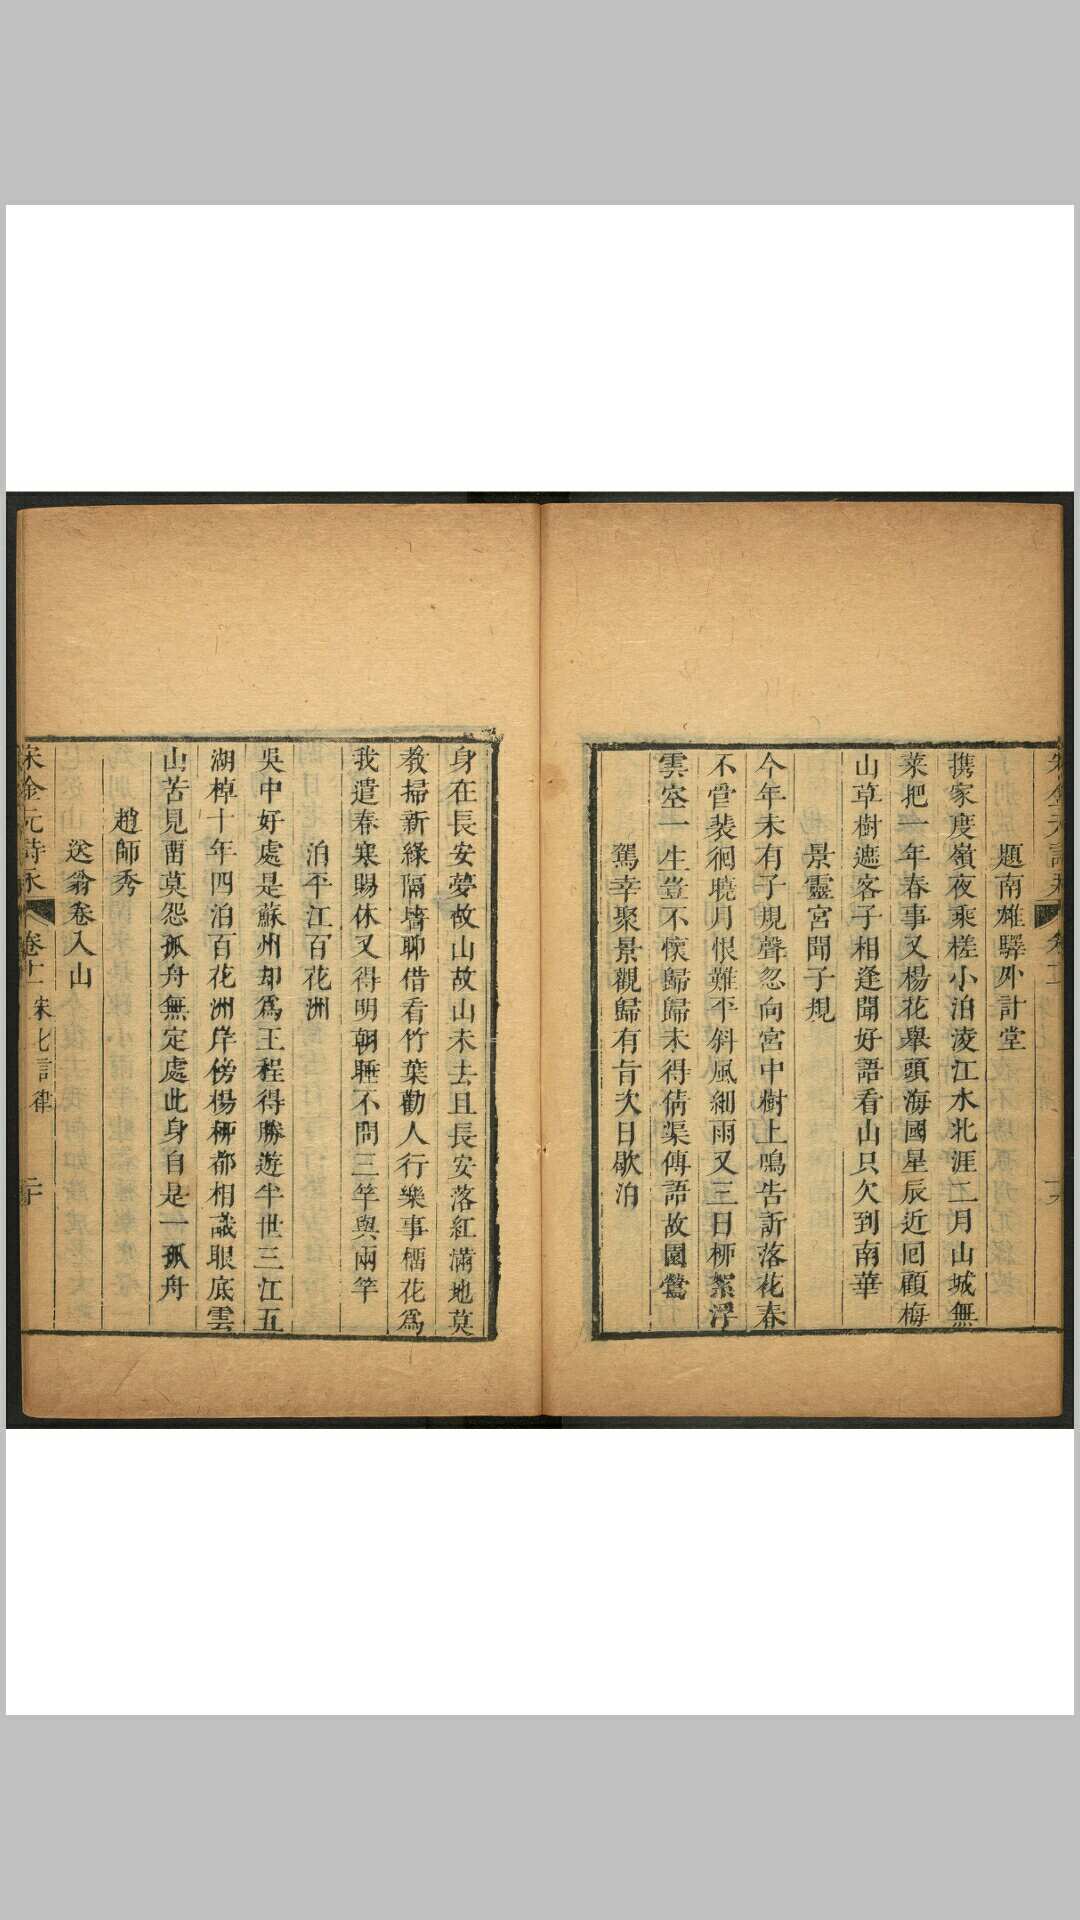 題南雄驛外計堂
携家度嶺夜乘槎小泊淩江水北涯二月山城無
菜把一年春事又楊花舉頭海國星辰近回顧梅
山草樹遮客子相逢聞好語看山只欠到南華
景靈宮聞子規
今年未有子規聲忽向宮中樹上鳴告訴落花春
不管裴徊曉月恨難平斜風細雨又三日柳絮浮
雲空一生豈不懷歸歸未得倩渠傳語故園鶯
駕幸聚景觀歸有旨次日歇泊
身在長安夢故山故山未去且長安落紅滿地莫
教掃新綠隔墻聊借看竹葉勸人行樂事橊花爲
我遣春寒賜休又得明朝睡不問三竿與兩竿
泊平江百花洲
吳中好處是蘇州却爲王程得勝遊半世三江五
湖棹十年四泊百花洲岸傍楊柳都相識眼底雲
山苦見畱莫怨孤舟無定處此身自是一孤舟
趙師秀
送翁卷入山
宋金元詩永 卷十一 宋七言律 二十